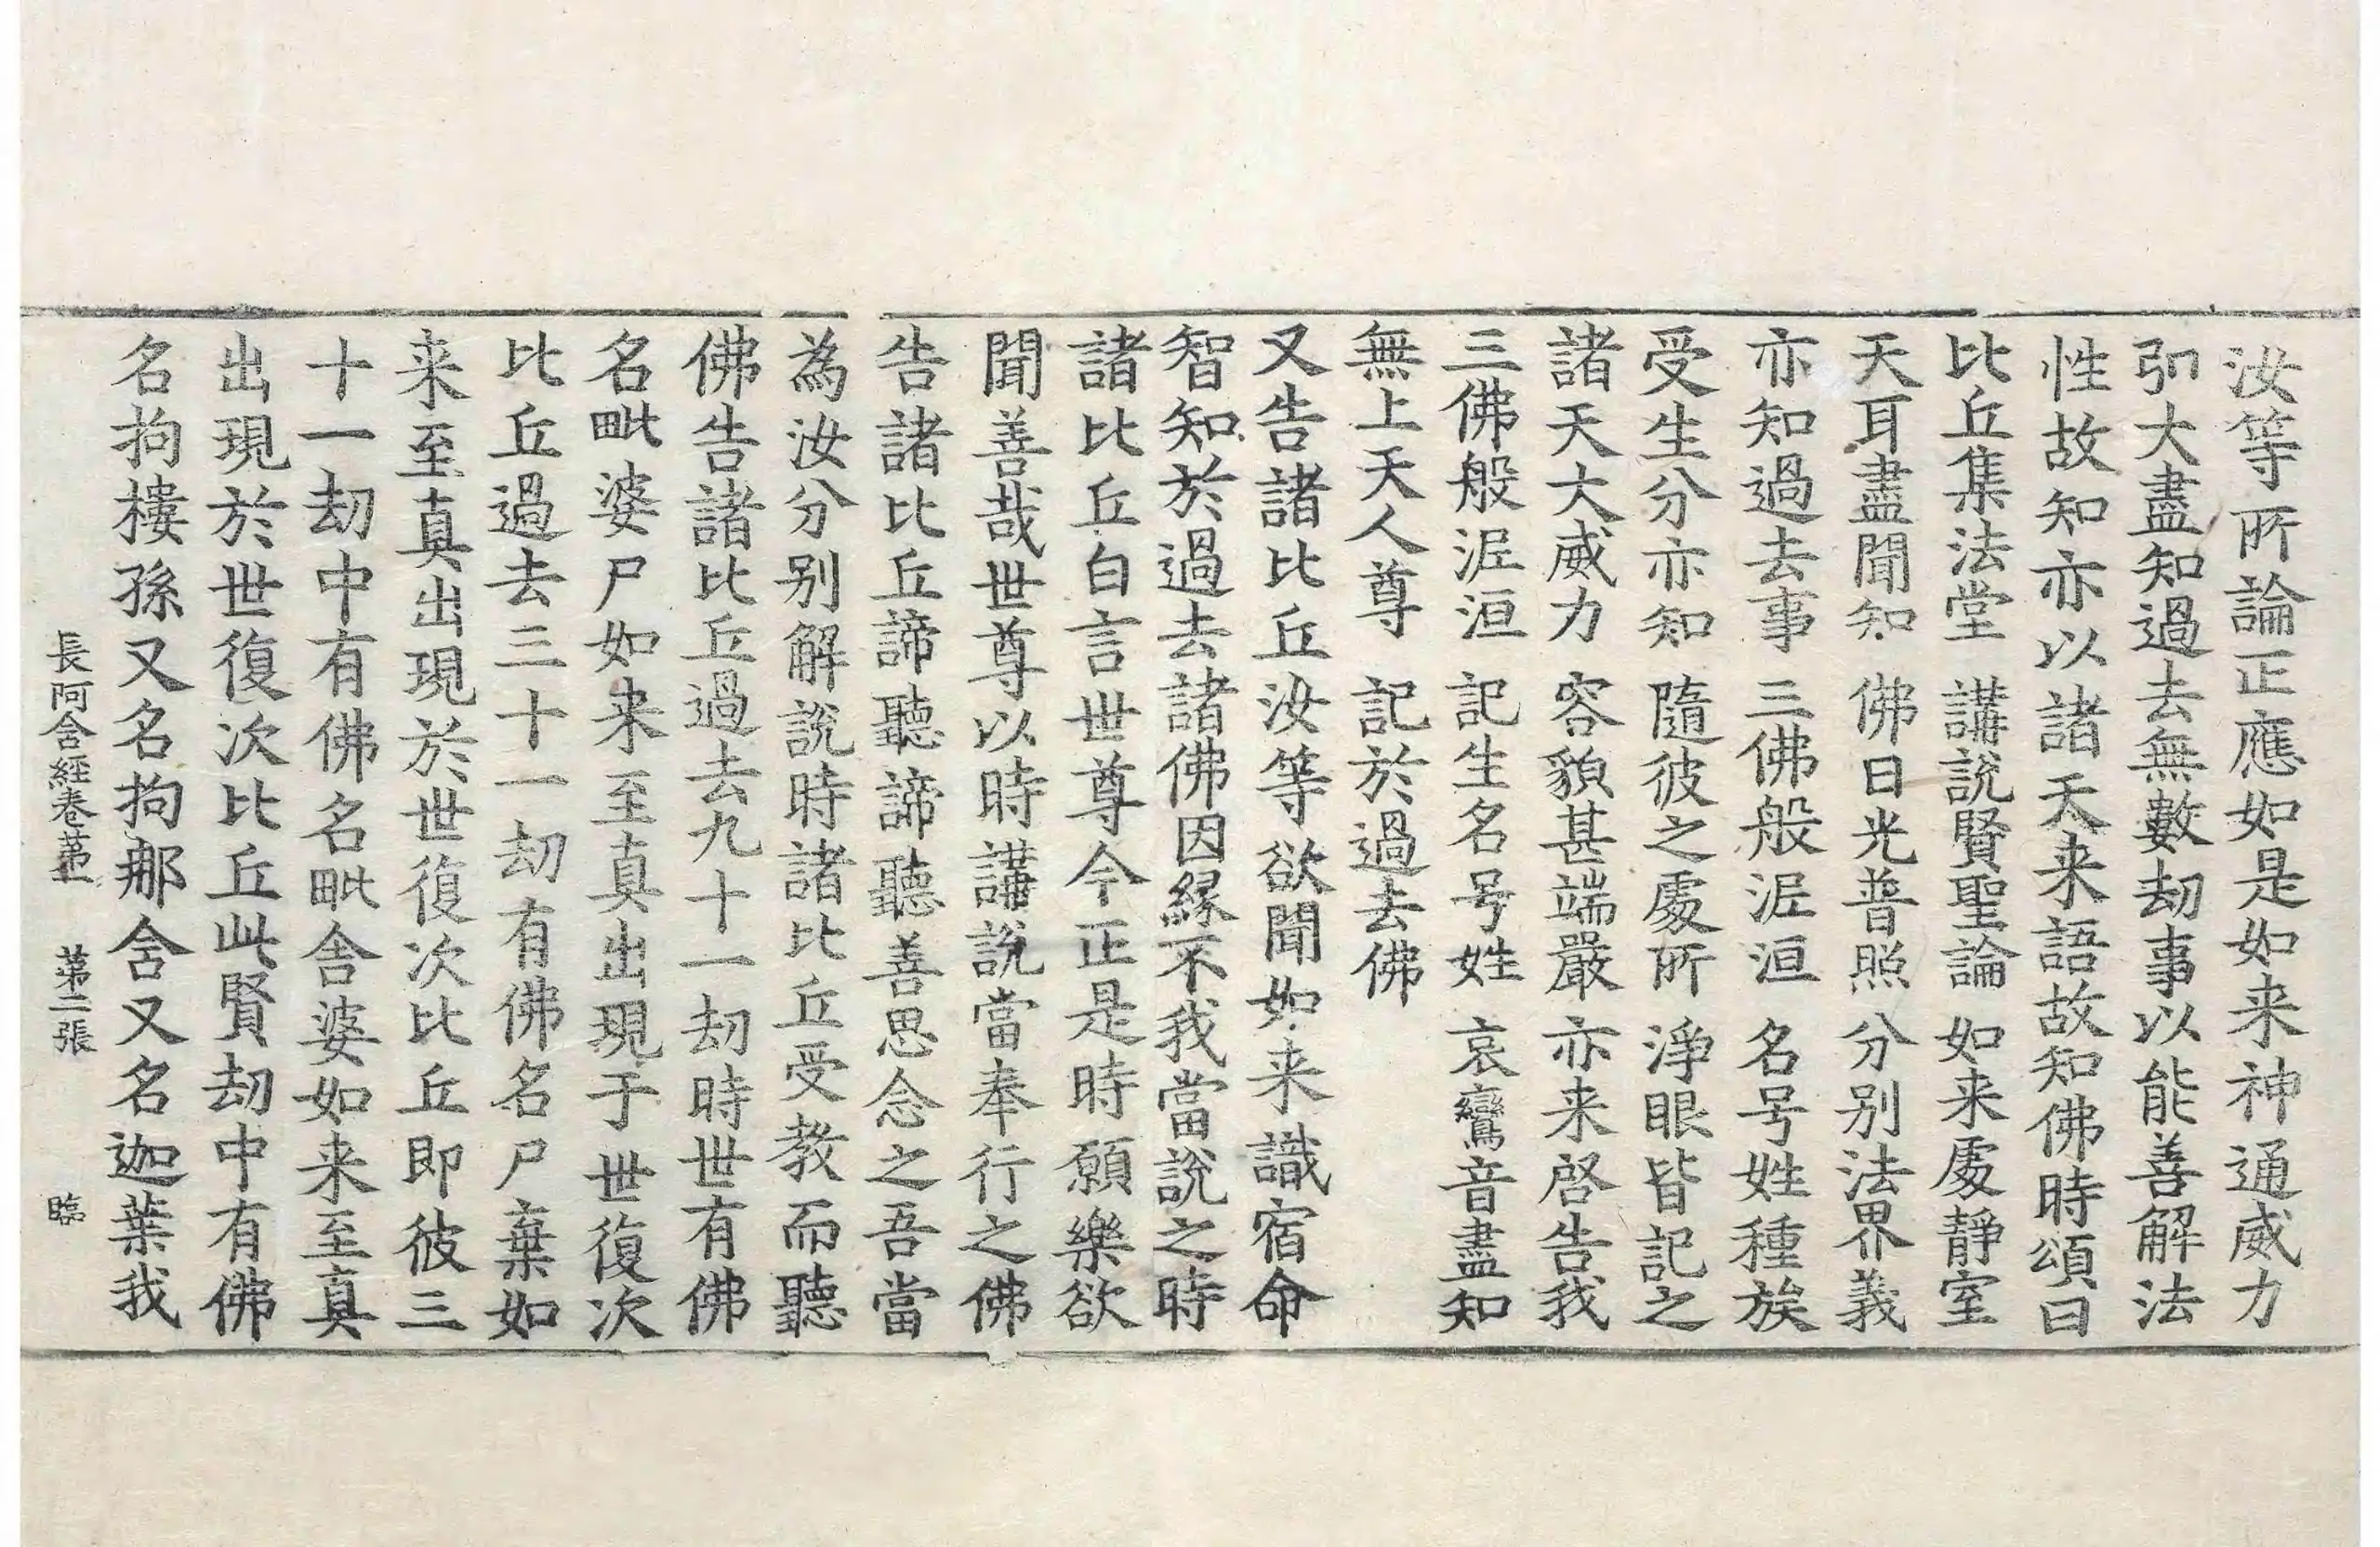 汝等所論正應如是如来神通威力
弘大盡知過去無數劫事以能善解法
性故知亦以諸天来語故知佛時頌曰
比丘集法堂 講說賢聖論 如来處靜室
天耳盡聞知 佛日光普照 分別法界義
亦知過去事 三佛般泥洹 名号姓種族
受生分亦知 隨彼之處所 淨眼皆記之
諸天大威力 容貌甚端嚴 亦来啓告我
三佛般泥洹 記生名号姓 哀鸞音盡知
無上天人尊 記於過去佛
又告諸比丘汝等欲聞如来識宿命
智知於過去諸佛因緣不我當說之時
諸比丘白言世尊今正是時願樂欲
聞善哉世尊以時講說當奉行之佛
告諸比丘諦聽諦聽善思念之吾當
為汝分別解說時諸比丘受教而聽
佛告諸比丘過去九十一劫時世有佛
名毗婆尸如来至真出現于世復次
比丘過去三十一劫有佛名尸棄如
来至真出現於世復次比丘即彼三
十一劫中有佛名毗舍婆如来至真
出現於世復次比丘此賢劫中有佛
名拘樓孫又名拘那舍又名迦葉我
長阿含經卷第一 第二張 臨